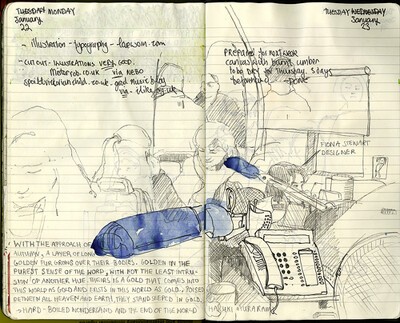 TUESDAY MONDAY
January
22
- illustration - typography - faesum.com
- cut out - illustrations very good.
motorfob.co.uk via NEBO
spoiltvictorianchild.co.uk - good music blog
via - ilike.org.uk
WITH THE APPROACH OF
AUTUMN, A LAYER OF LONG
GOLDEN FUR GROWS OVER THEIR BODIES. GOLDEN IN THE
PUREST SENSE OF THE WORD, WITH NOT THE LEAST INTRU-
SION OF ANOTHER HUE. THEIRS IS A GOLD THAT COMES INTO
THIS WORLD AS GOLD AND EXISTS IN THIS WORLD AS GOLD. POISED
BETWEEN ALL HEAVEN AND EARTH, THEY STAND STEEPED IN GOLD.
- HARD-BOILED WONDERLAND AND THE END OF THE WORLD
HARUKI MURAKAMI
TUESDAY WEDNESDAY
January
23
PREPARED for next week
canvas with burnt umber
to be DRY for Thursday. 3 days
beforehand - DONE
FIONA STEWART
DESIGNER